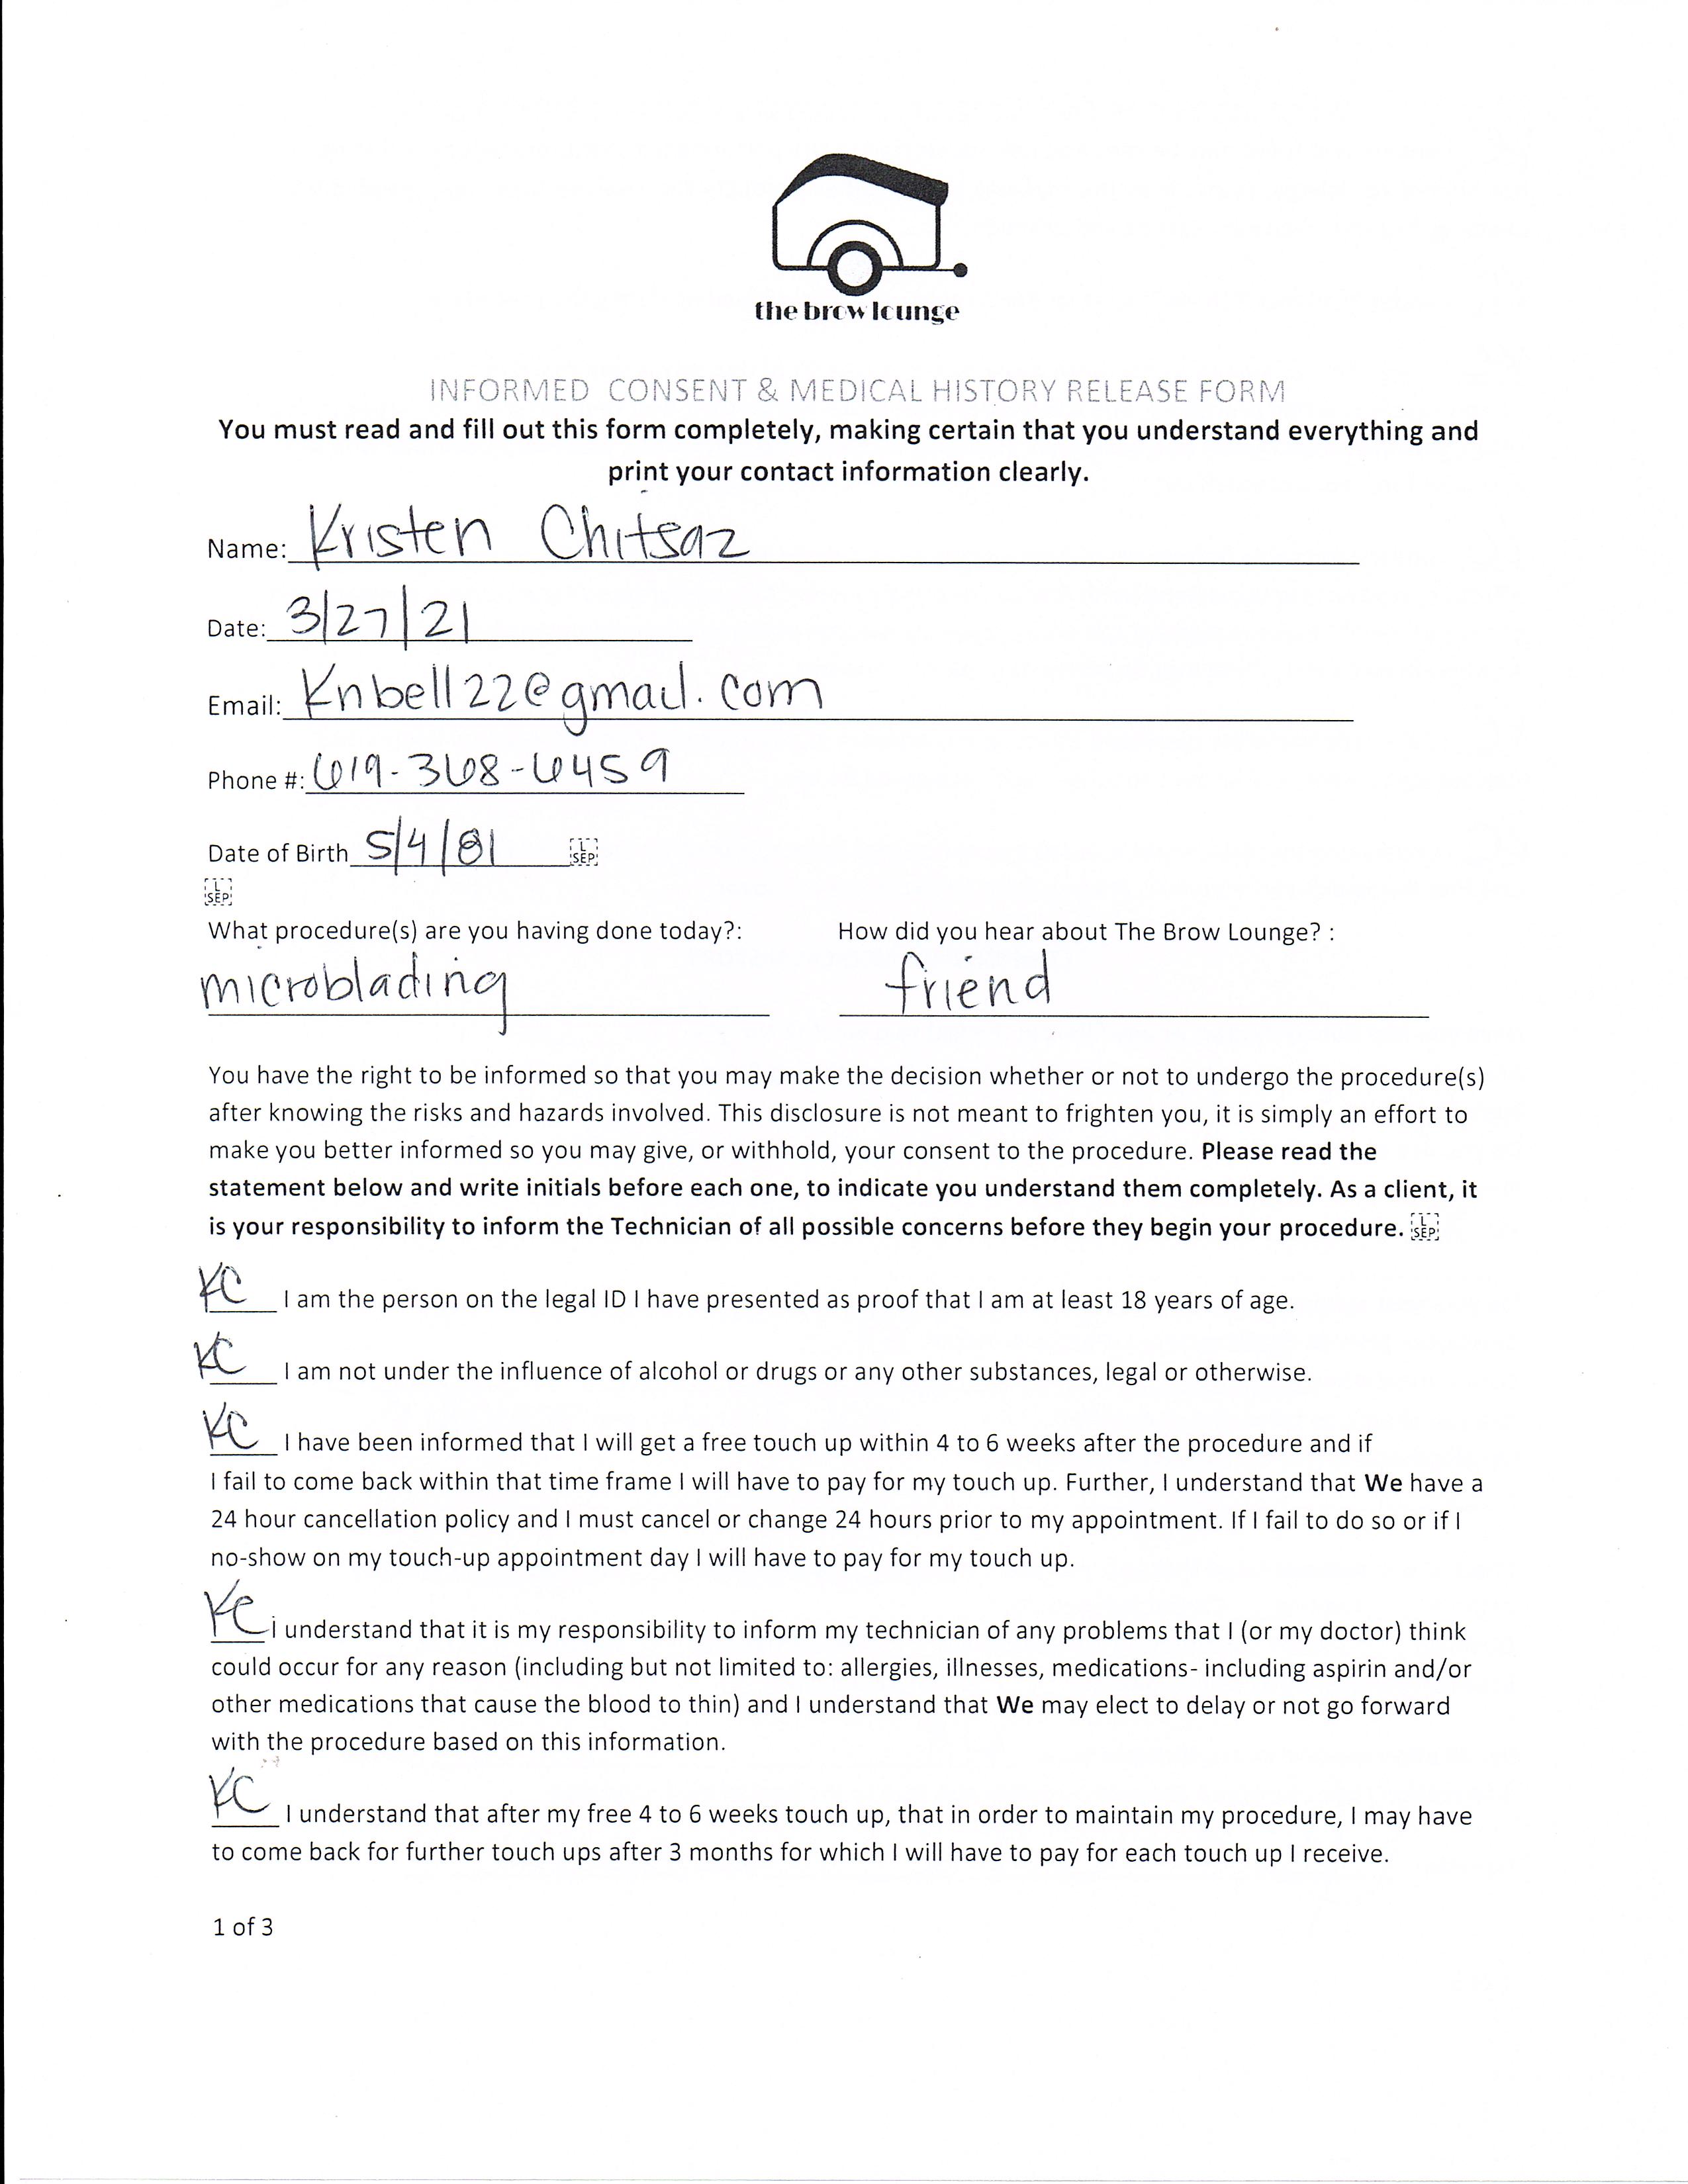 the brow lounge
INFORMED CONSENT & MEDICAL HISTORY RELEASE FORM
You must read and fill out this form completely, making certain that you understand everything and
print your contact information clearly.
Name: Kristen Chitsaz
Date: 3/27/21
Email: Knbell22@gmail.com
Phone #: 619-368-6459
Date of Birth 5/4/81 L SEP
L SEP
What procedure(s) are you having done today?: How did you hear about The Brow Lounge? :
microblading friend
You have the right to be informed so that you may make the decision whether or not to undergo the procedure(s)
after knowing the risks and hazards involved. This disclosure is not meant to frighten you, it is simply an effort to
make you better informed so you may give, or withhold, your consent to the procedure. Please read the
statement below and write initials before each one, to indicate you understand them completely. As a client, it
is your responsibility to inform the Technician of all possible concerns before they begin your procedure. L SEP
KC I am the person on the legal ID I have presented as proof that I am at least 18 years of age.
KC I am not under the influence of alcohol or drugs or any other substances, legal or otherwise.
KC I have been informed that I will get a free touch up within 4 to 6 weeks after the procedure and if
I fail to come back within that time frame I will have to pay for my touch up. Further, I understand that We have a
24 hour cancellation policy and I must cancel or change 24 hours prior to my appointment. If I fail to do so or if I
no-show on my touch-up appointment day I will have to pay for my touch up.
KC i understand that it is my responsibility to inform my technician of any problems that I (or my doctor) think
could occur for any reason (including but not limited to: allergies, illnesses, medications- including aspirin and/or
other medications that cause the blood to thin) and I understand that We may elect to delay or not go forward
with the procedure based on this information.
KC I understand that after my free 4 to 6 weeks touch up, that in order to maintain my procedure, I may have
to come back for further touch ups after 3 months for which I will have to pay for each touch up I receive.
1 of 3